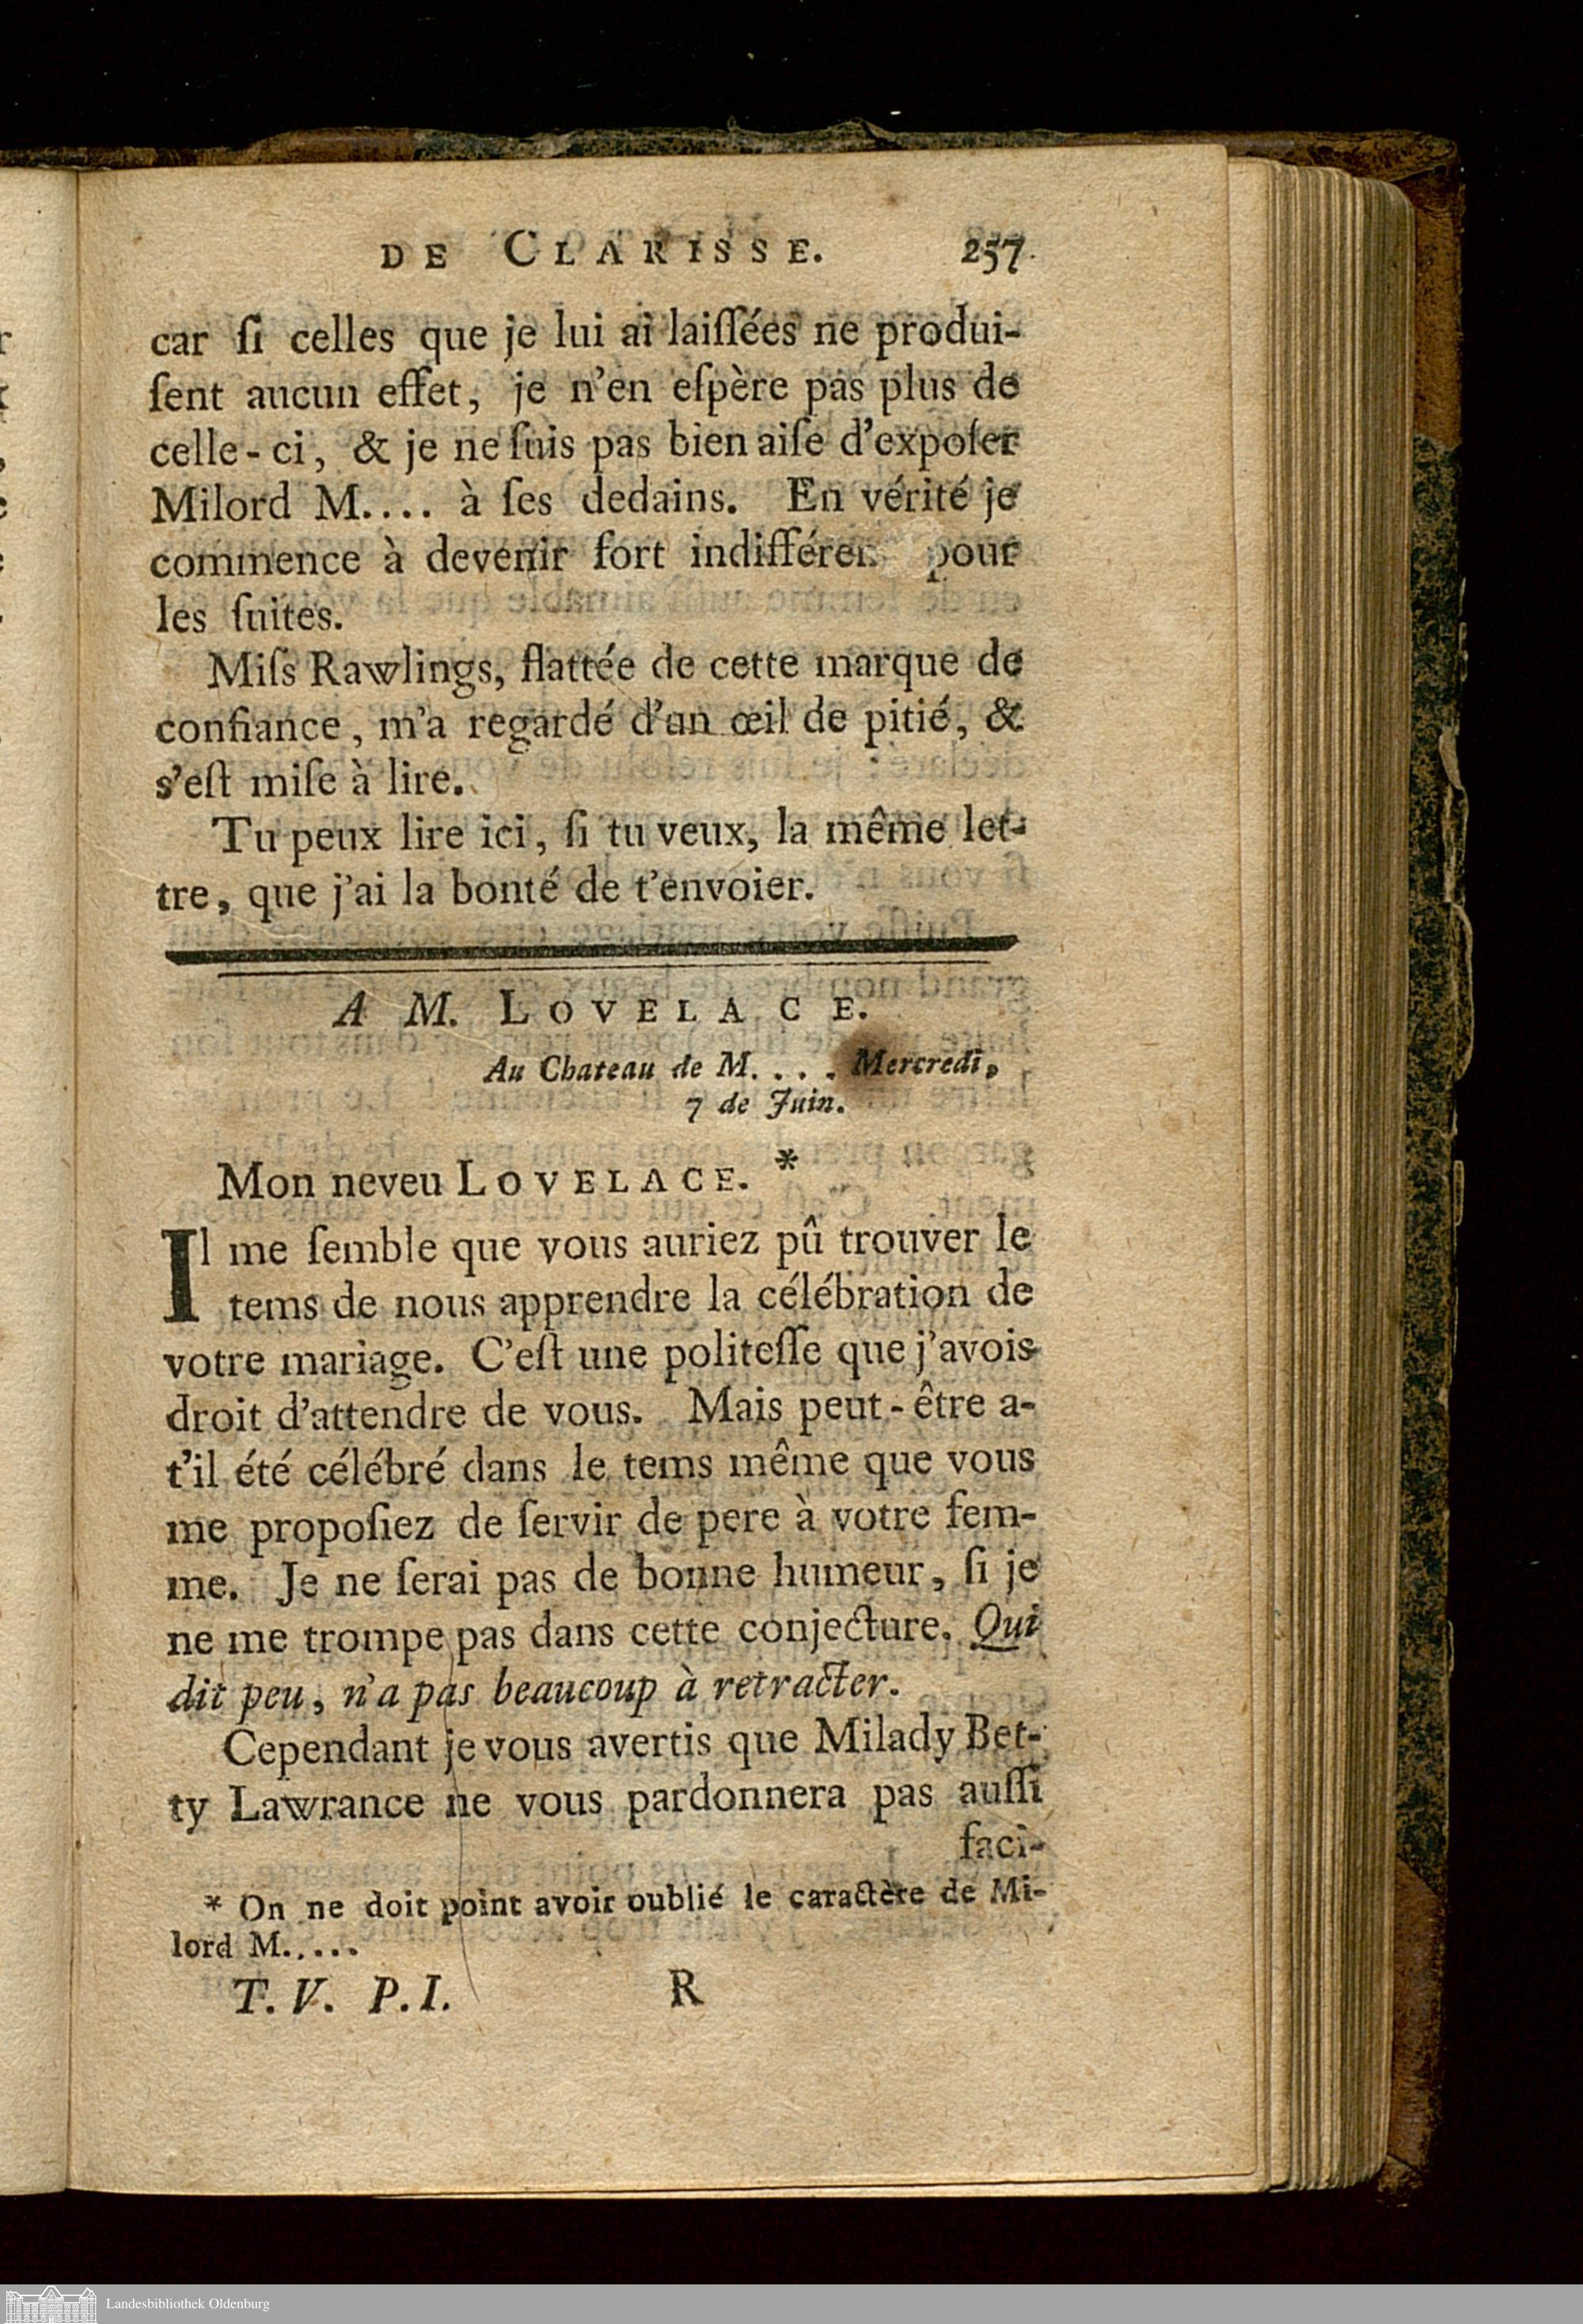 DE CLARISSE. 257
car ſi celles que je lui ai laiſſées ne produi-
ſent aucun effet, je n'en eſpère pas plus de
celle-ci, & je ne ſuis pas bien aiſe d'expoſer
Milord M.... à ſes dedains. En vérité je
commence à devenir fort pour
les ſuites.
Miſs Rawlings, flattée de cette marque de
confiance, m'a regardé d'un œil de pitié, &
s'eſt miſe à lire.
Tu peux lire ici, ſi tu veux, la même let-
tre, que j'ai la bonté de t'envoier.
A M. LOVELACE.
Au Chateau de M. . . . Mercredi,
7 de Juin.
Mon neveu LOVELACE. *
Il me ſemble que vous auriez pû trouver le
tems de nous apprendre la célébration de
votre mariage. C'eſt une politeſſe que j'avois
droit d'attendre de vous. Mais peut-être a-
t'il été célébré dans le tems même que vous
me propoſiez de ſervir de pere à votre fem-
me. Je ne ſerai pas de bonne humeur, ſi je
ne me trompe pas dans cette conjecture. Qui
dit peu, n'a pas beaucoup à retracter.
Cependant je vous avertis que Milady Bet-
ty Lawrance ne vous pardonnera pas auſſi
faci-
* On ne doit point avoir oublié le caractère de Mi-
lord M.....
T. V. P. I. R
Landesbibliothek Oldenburg